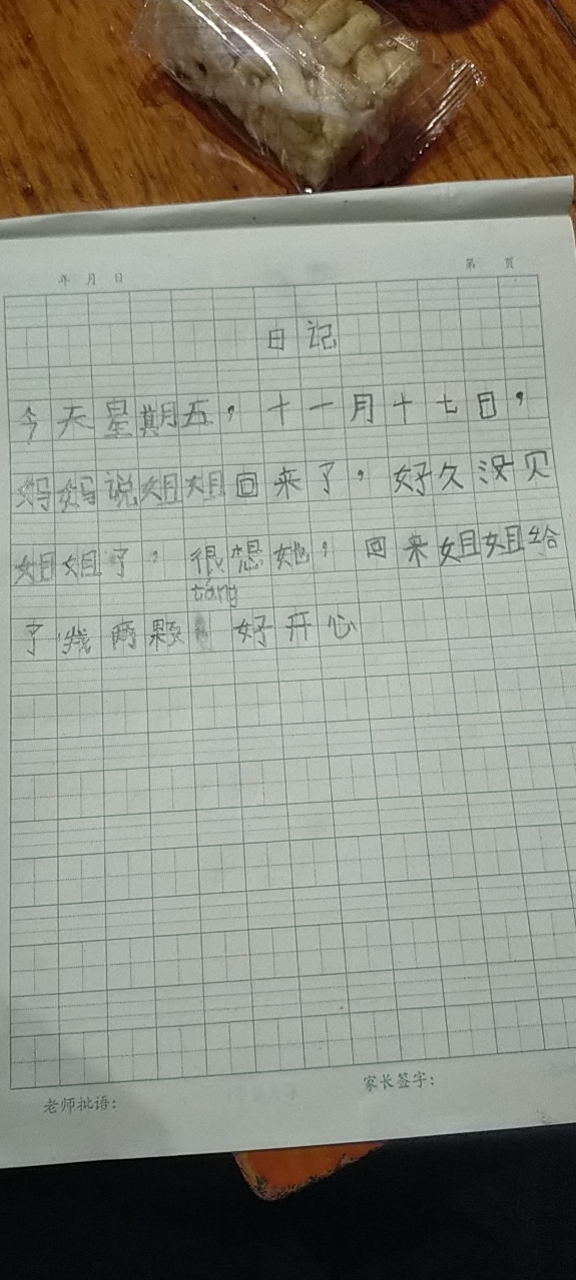 年 月 日 第 页
日记
今天星期五，十一月十七日，
妈妈说姐姐回来了，好久没贝
姐姐了，很想她，回来姐姐给
táng
了我两颗 好开心
老师批语： 家长签字：